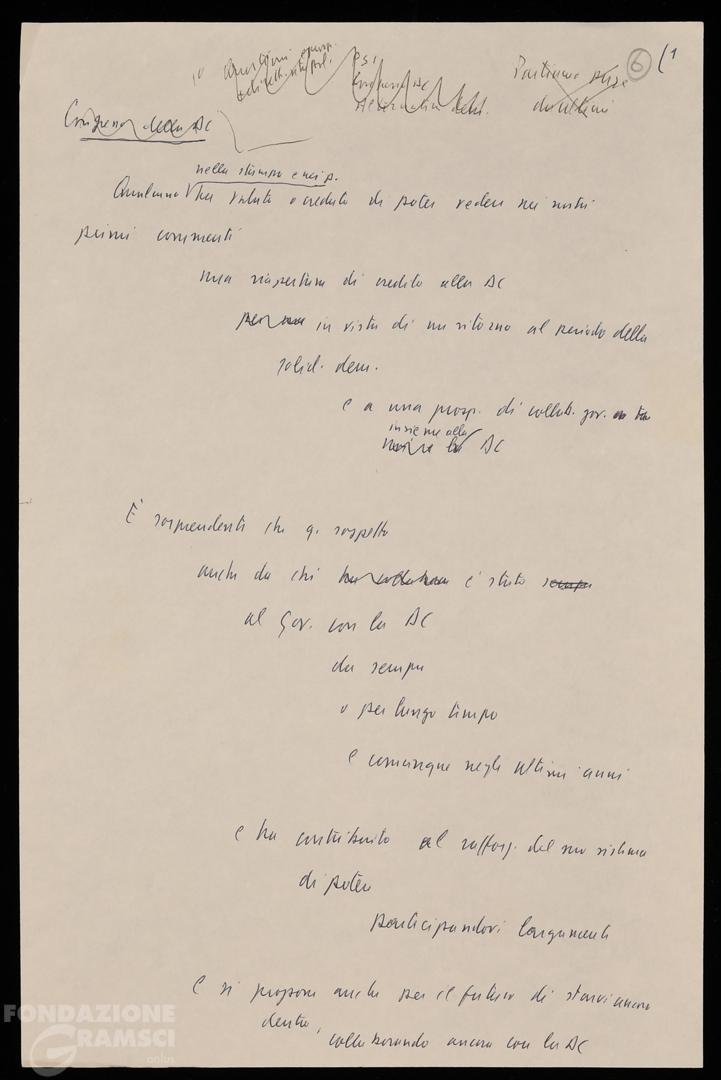 1° Questioni
PSI
6 (1
Congresso della DC
nella stampa e
Qualcuno ha voluto o creduto di poter vedere nei nostri
primi commenti
una riapertura di credito alla DC
in vista di un ritorno al periodo della
solid. dem.
e a una prosp. di collab. gov.
insieme alla DC
È sorprendente che q. sospetto
anche da chi è stato sempre
al Gov. con la DC
da sempre
o per lungo tempo
e comunque negli ultimi anni
e ha contribuito al rafforz. del suo sistema
di potere
partecipandovi largamente
e si propone anche per il futuro di starvi ancora
dentro,
collaborando ancora con la DC
FONDAZIONE
GRAMSCI
onlus